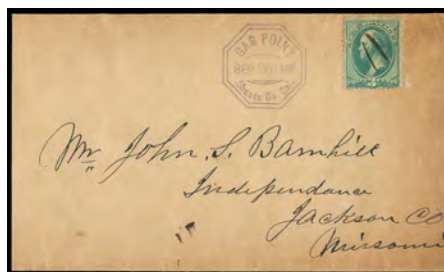 GAS POINT
SEP
Shasta Co. Cal.
Mr John. S. Barnhill
Independence
Jackson Co
Missouri